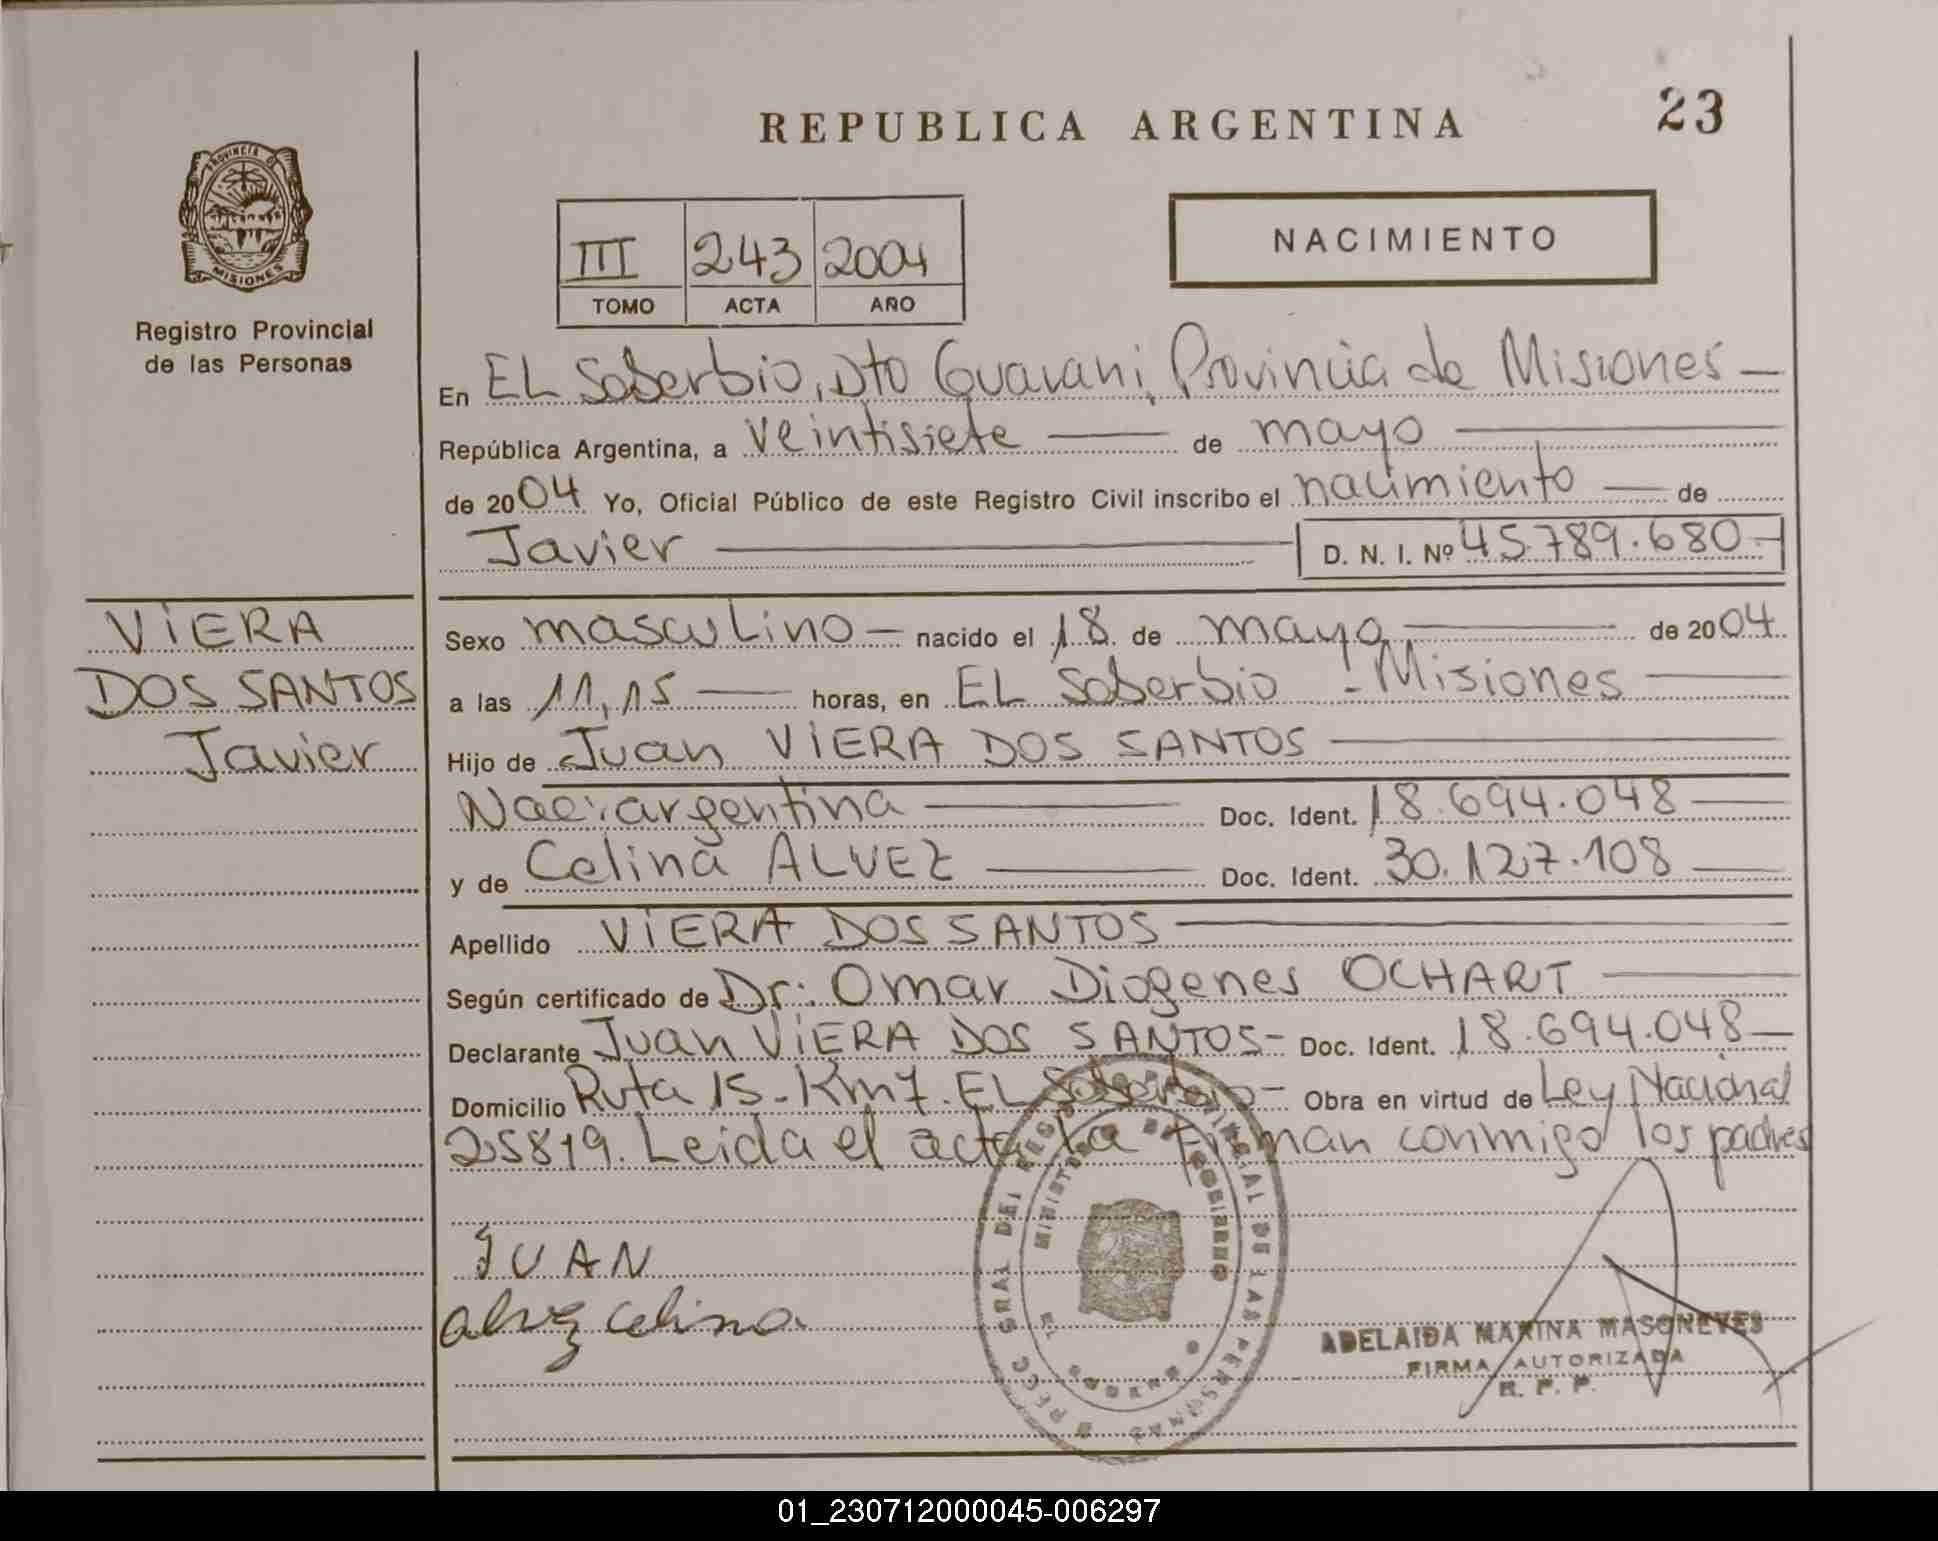 REPUBLICA ARGENTINA
23
PROVINCIA DE
MISIONES
Registro Provincial
de las Personas
III 243 2004
TOMO ACTA AÑO
NACIMIENTO
En EL Soberbio, Dto Guarani, Provincia de Misiones
República Argentina, a veintisiete de mayo
de 2004 Yo, Oficial Público de este Registro Civil inscribo el nacimiento de
Javier D. N. I. Nº 45.789.680
VIERA
DOS SANTOS
Javier
Sexo masculino nacido el 18 de mayo de 2004
a las 11,15 horas, en EL Soberbio - Misiones
Hijo de Juan VIERA DOS SANTOS
Nac: argentina Doc. Ident. 18.694.048
y de Celina ALVEZ Doc. Ident. 30.127.108
Apellido VIERA DOS SANTOS
Según certificado de Dr: Omar Diogenes OCHART
Declarante Juan VIERA DOS SANTOS Doc. Ident. 18.694.048
Domicilio Ruta 15-Km7. EL Soberbio Obra en virtud de Ley Nacional
25819. Leida el acta la firman conmigo los padres
JUAN
alvez celina
ADELAIDA MARINA MASONEVES
FIRMA AUTORIZADA
R. P. P.
01_230712000045-006297